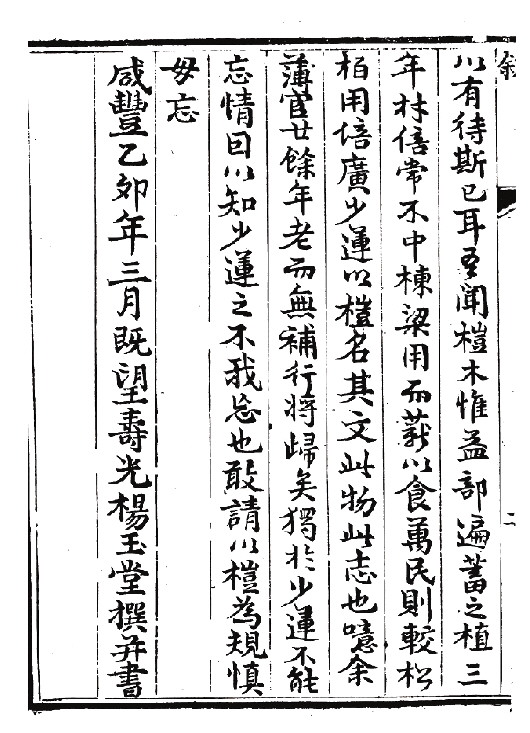 以有待斯已耳吾聞榿木惟益部遍蓄之植三
年材倍常不中棟梁用而薪以食萬民則較松
栢用倍廣少蓮以榿名其文此物此志也噫余
薄宦廿餘年老而無補行將歸矣獨於少蓮不能
忘情曰以知少蓮之不我忘也敢請以榿為規慎
毋忘
咸豐乙卯年三月既望壽光楊玉堂撰并書
二